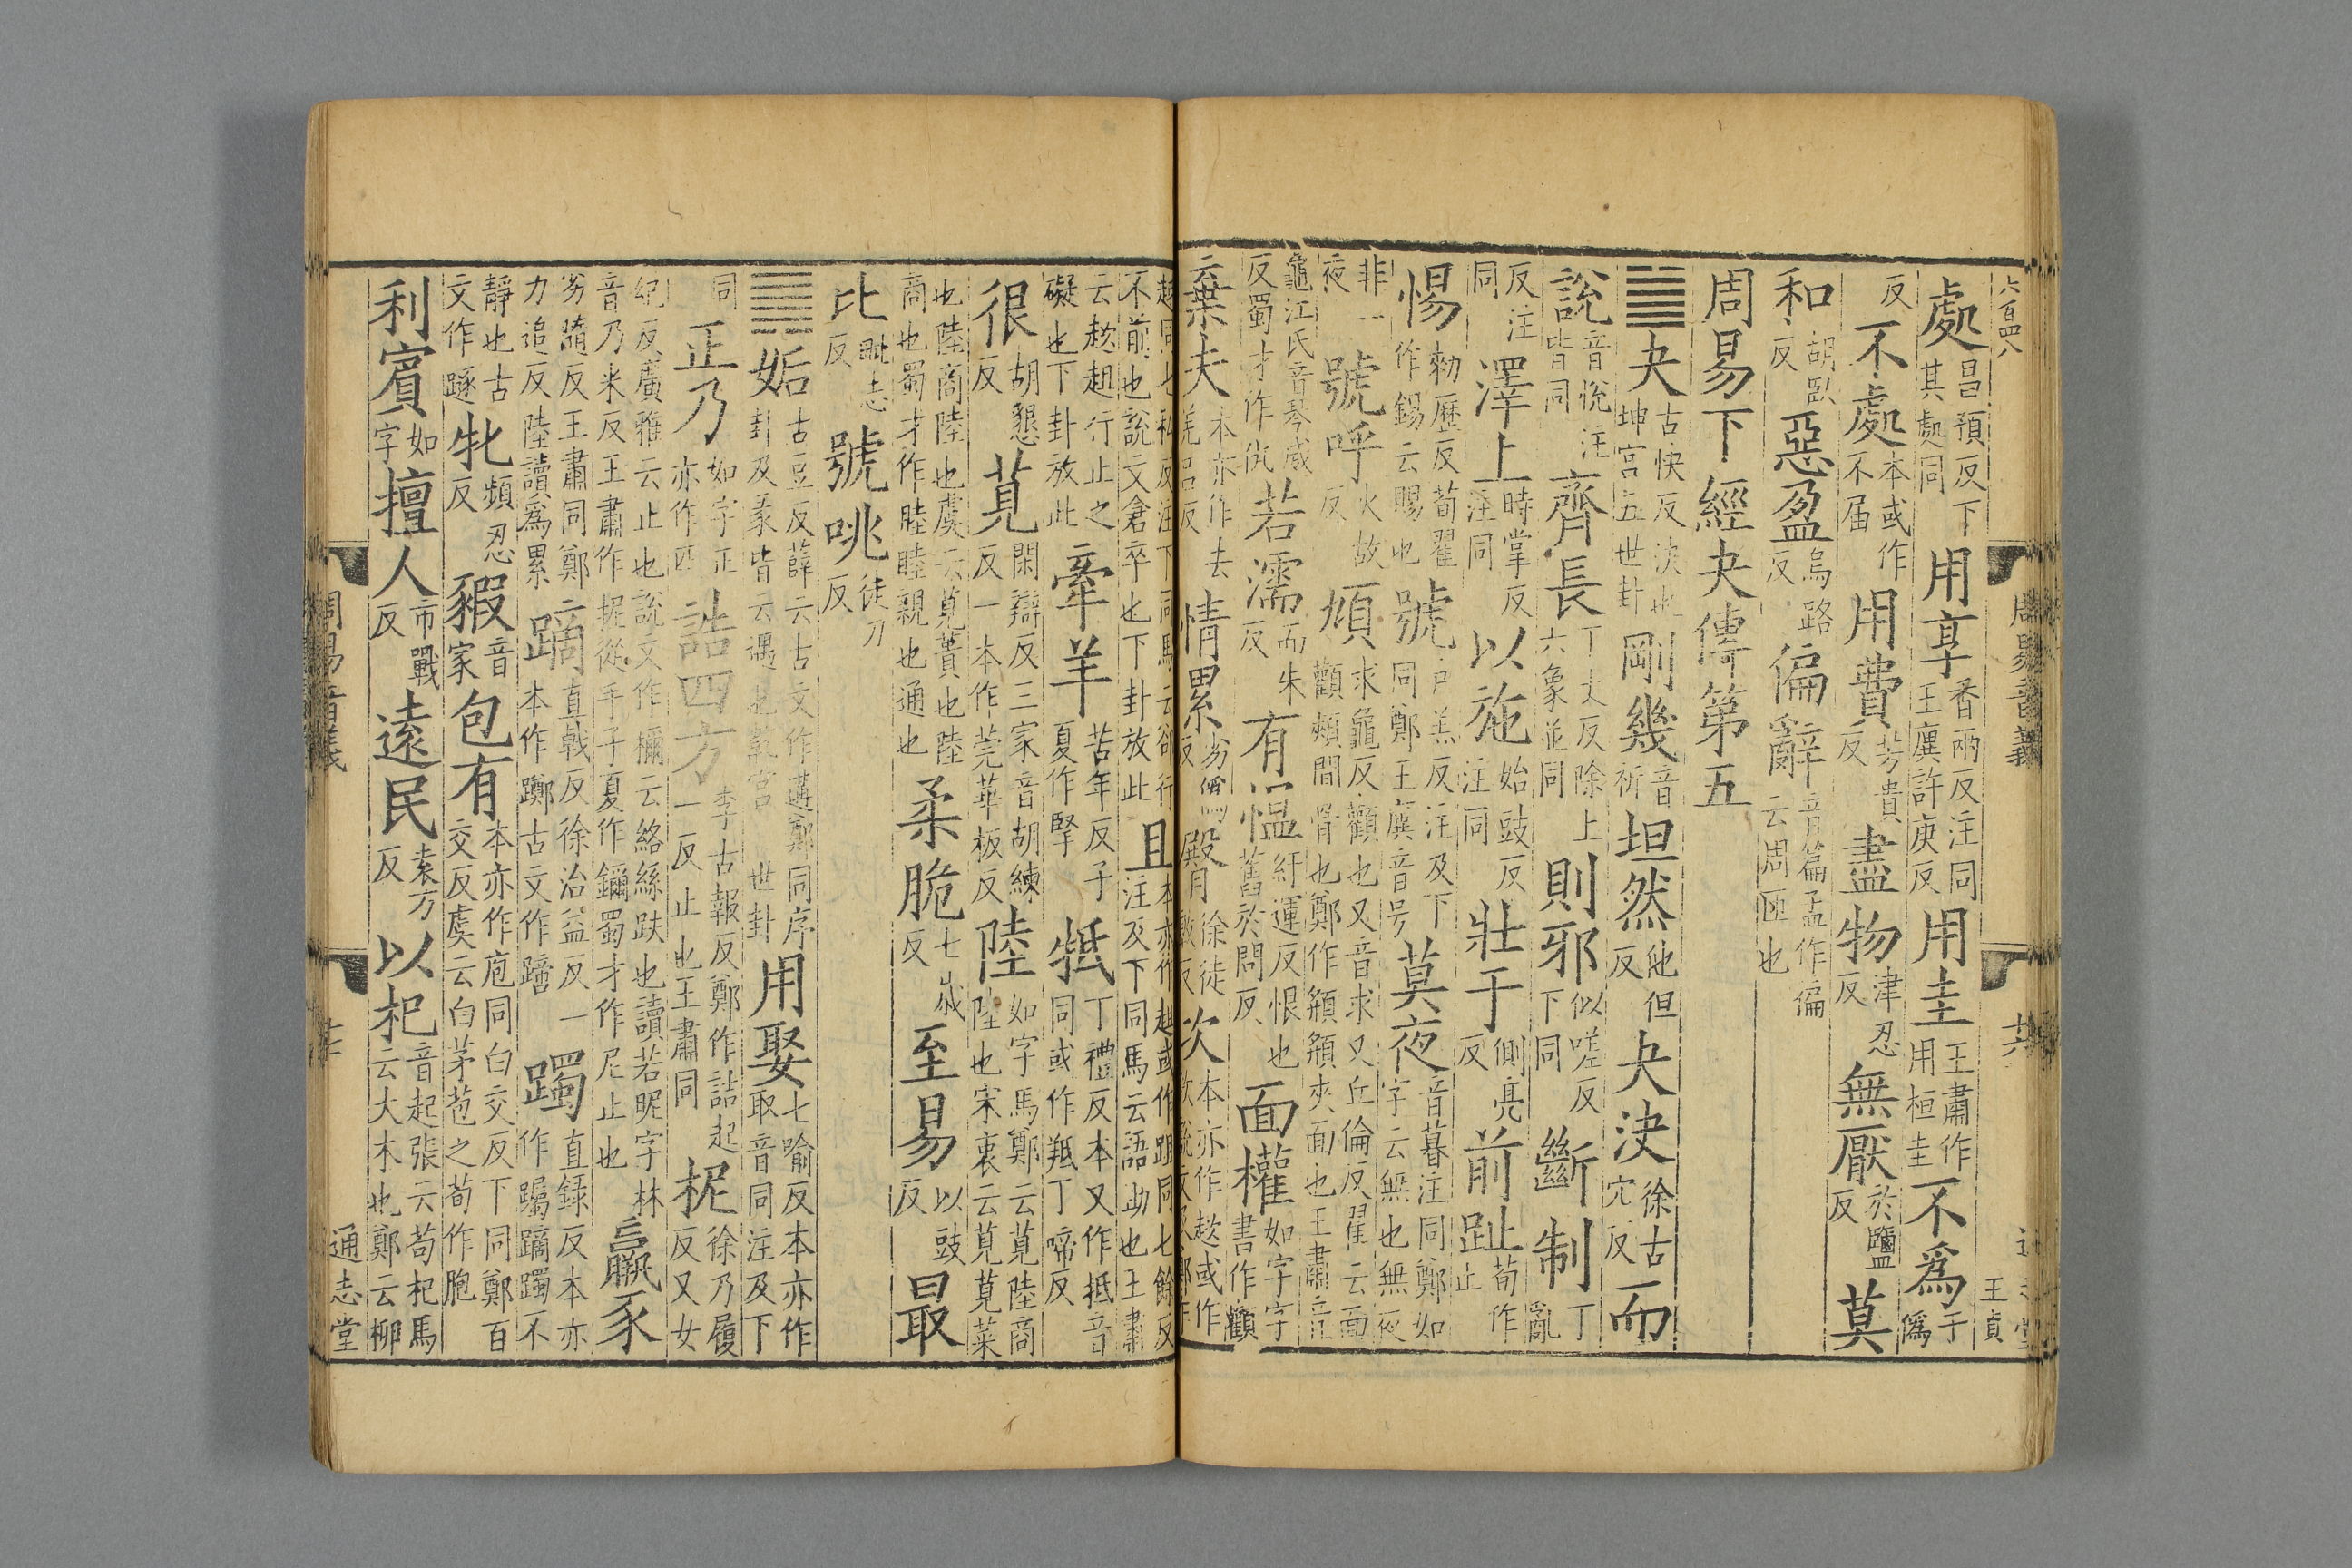 六百四八 周易音義 王貞
處昌預反下其處同用享香兩反注同王廙許庚反用圭王肅作用桓圭不爲于僞
反不處本或作不届用費芳貴反盡物津忍反無厭於鹽反莫
和胡臥反惡盈烏路反偏辭音篇孟作徧云周匝也
周易下經夬傳第五
䷪夬古快反決也坤宮五世卦剛幾音祈坦然他但反夬決徐古穴反而
說音悅注皆同齊長丁丈反除上六象並同則邪似嗟反下同斷制丁亂
反注同澤上時掌反注同以施始豉反注同壯于側亮反前趾荀作止
惕勑歷反荀翟作錫云賜也號戶羔反注及下同鄭王廙音号莫夜音暮注同鄭如字云無也無夜
非一夜號呼火故反頄求龜反顴也又音求又丘倫反翟云面顴頰間骨也鄭作頯頯夾面也王肅音
龜江氏音琴威反蜀才作仇若濡而朱反有慍紆運反恨也舊於問反面權如字字書作顴
云棄夫本亦作去羌呂反情累劣僞反臀徐徒敦反次本亦作趑或作
趀同七私反注下同馬云卻行不前也說文倉卒也下卦放此且本亦作趄或作跙同七餘反注及下同馬云語助也王肅
云趑趄行止之礙也下卦放此牽羊苦年反子夏作掔牴丁禮反本又作抵音同或作羝丁啼反
很胡懇反莧閑辯反三家音胡練反一本作莞華板反陸如字馬鄭云莧陸商陸也宋衷云莧莧菜
也陸商陸也虞云莧蕢也陸商也蜀才作睦睦親也通也柔脆七歲反至易以豉反最
比毗志反號咷徒刀反
䷫姤古豆反薛云古文作遘鄭同序卦及彖皆云遇也乾宮一世卦用娶七喻反本亦作取音同注及下
同正乃如字正亦作匹誥四方李古報反鄭作詰起一反止也王肅同柅徐乃履反又女
紀反廣雅云止也說文作檷云絡絲趺也讀若昵字林音乃米反王肅作抳從手子夏作鑈蜀才作尼止也羸豕
劣隨反王肅同鄭力追反陸讀爲累蹢直戟反徐治益反一本作躑古文作蹢躅直錄反本亦作躅蹢躅不
靜也古文作𨅖牝頻忍反豭音家包有本亦作庖同白交反下同鄭百交反虞云白茅苞之荀作胞
利賓如字擅人市戰反遠民袁万反以杞音起張云苟杞馬云大木也鄭云柳
周易音義 通志堂